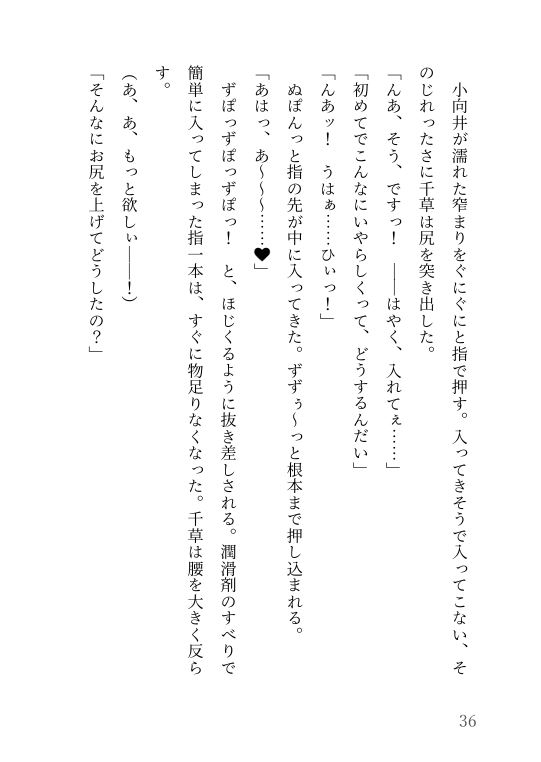 小向井が濡れた窄まりをぐにぐにと指で押す。入ってきそうで入ってこない、そ
のじれったさに千草は尻を突き出した。
「んあ、そう、ですっ！　――はやく、入れてぇ……」
「初めてでこんなにいやらしくって、どうするんだい」
「んあッ！　うはぁ……ひぃっ！」
　ぬぽんっと指の先が中に入ってきた。ずずぅ〜っと根本まで押し込まれる。
「あはっ、あ〜〜〜……♥」
　ずぽっずぽっずぽっ！　と、ほじくるように抜き差しされる。潤滑剤のすべりで
簡単に入ってしまった指一本は、すぐに物足りなくなった。千草は腰を大きく反ら
す。
（あ、あ、もっと欲しぃ――！）
「そんなにお尻を上げてどうしたの？」
36